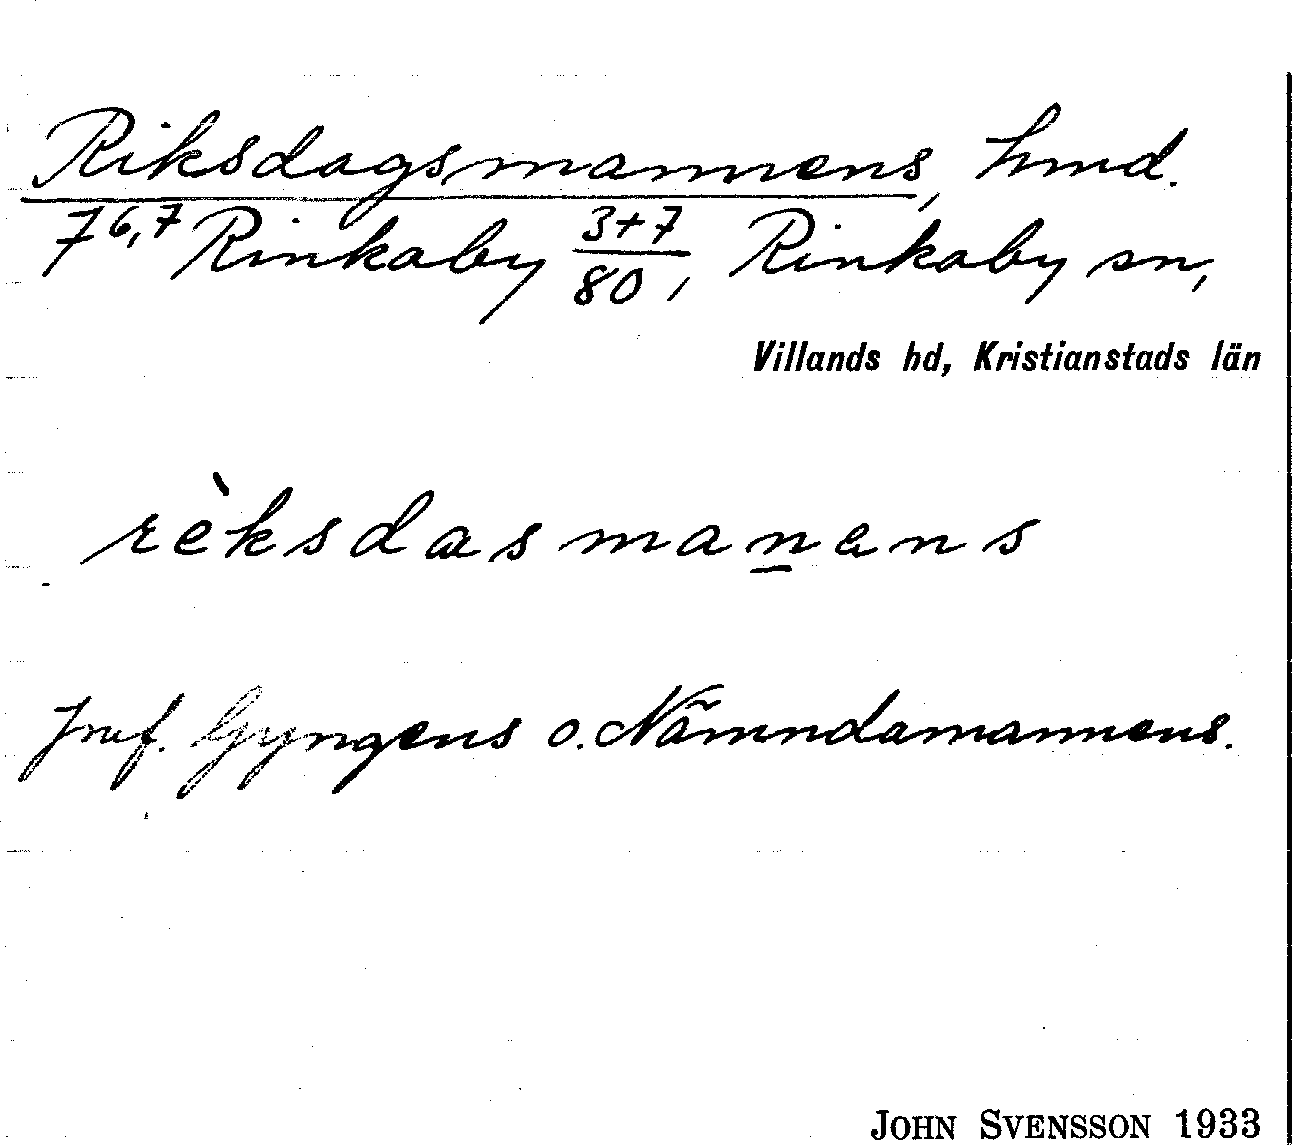 Riksdagsmannens, hmd.
7⁶,⁷ Rinkaby 3+7/80, Rinkaby sn,
Villands hd, Kristianstads län
rèksdasmanens
Jmf. Gyngens o. Nämndamannens.
JOHN SVENSSON 1933